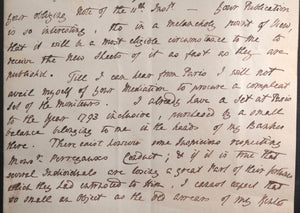 your obliging Note of the 11th Inst. — Your Publication
is so interesting, tho in a melancholy point of View
that it will be a most eligible circumstance to me to
receive the New Sheets of it as fast as they are
publishd. Till I can hear from Paris I will not
avail myself of your Mediation to procure a compleat
Set of the Moniteurs. I already have a Set at Paris
to the Year 1793 inclusive, purchased by a small
balance belonging to me in the hands of my Banker
there. There exist however some Suspicions respecting
Monsr. Perregaux Conduct; & if it is true that
several Individuals are losing a great Part of their fortunes
which they had intrusted to Him, I cannot expect that
so small an object as the old arrears of my